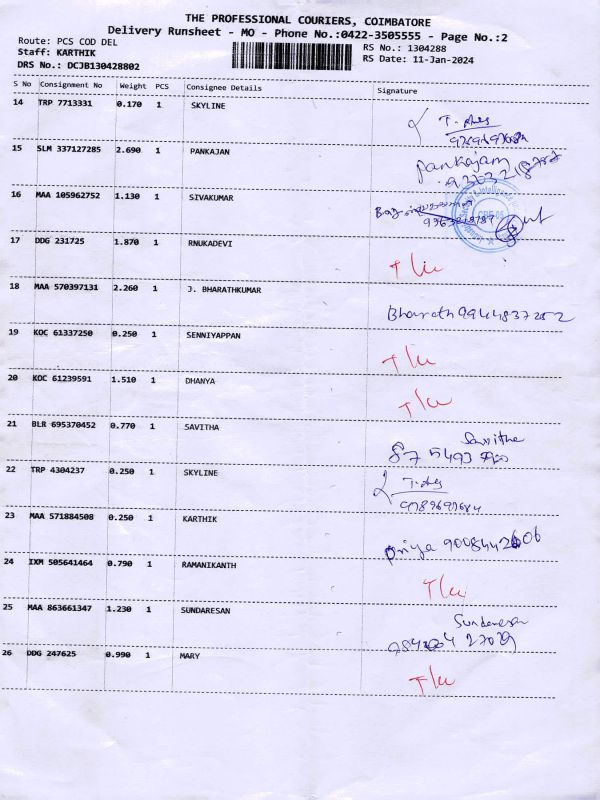 THE PROFESSIONAL COURIERS, COIMBATORE
Delivery Runsheet - MO - Phone No.:0422-3505555 - Page No.:2
Route: PCS COD DEL
RS No.: 1304288
Staff: KARTHIK
RS Date: 11-Jan-2024
DRS No.: DCJB130428802
S No Consignment No Weight PCS Consignee Details Signature
14 TRP 7713331 0.170 1 SKYLINE
15 SLM 337127285 2.690 1 PANKAJAN
Pankajam
16 MAA 105962752 1.130 1 SIVAKUMAR
17 DDG 231725 1.870 1 RNUKADEVI
18 MAA 570397131 2.260 1 J. BHARATHKUMAR
Bharath 9944837252
19 KOC 61337250 0.250 1 SENNIYAPPAN
20 KOC 61239591 1.510 1 DHANYA
21 BLR 695370452 0.770 1 SAVITHA
Savitha
22 TRP 4304237 0.250 1 SKYLINE
23 MAA 571884508 0.250 1 KARTHIK
Priya
24 IXM 505641464 0.790 1 RAMANIKANTH
25 MAA 863661347 1.230 1 SUNDARESAN
Sundaresan
26 DDG 247625 0.990 1 MARY